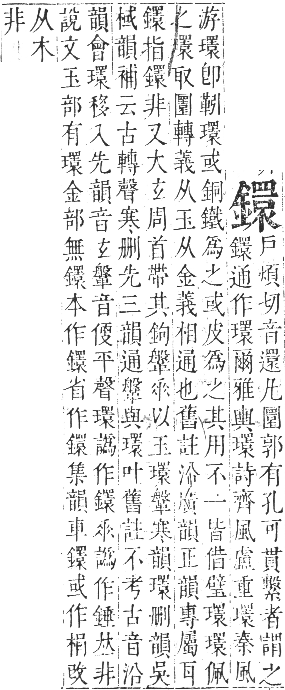 鐶戶頑切音還凡圜郭有孔可貫繫者謂之
鐶通作環爾雅輿環詩齊風盧重環秦風
游環卽靷環或銅鐵為之或皮為之其用不一皆借璧環環佩
之環取圜轉義从玉从金義相通也舊註沿濟韻正韻專屬耳
鐶指鐶非又大玄周首帶其鉤鞶乖以玉環鞶寒韻環刪韻吳
棫韻補云古轉聲寒刪先三韻通鞶與環叶舊註不考古音沿
韻會環移入先韻音玄鞶音便平聲環譌作鐶乖譌作錘𠀤非
說文玉部有環金部無鐶本作鐶省作鐶集韻車鐶或作梋改
从木
非